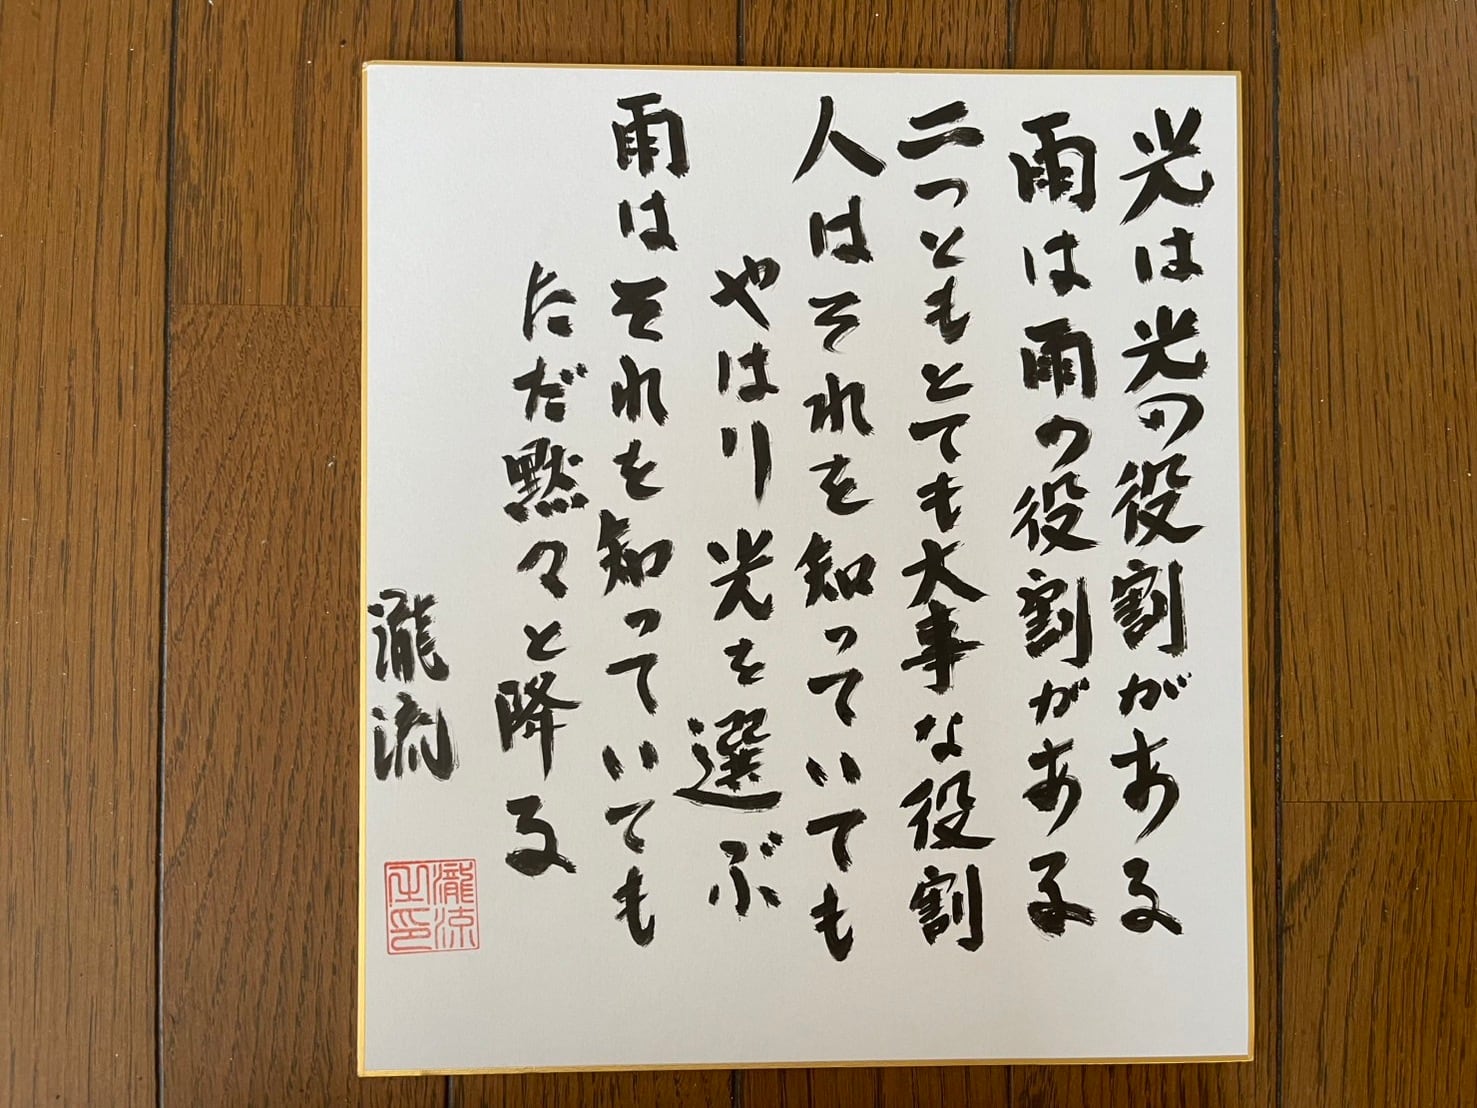 光は光の役割がある
雨は雨の役割がある
二つともとても大事な役割
人はそれを知っていても
やはり光を選ぶ
雨はそれを知っていても
ただ黙々と降る
瀧流
瀧涼
之印